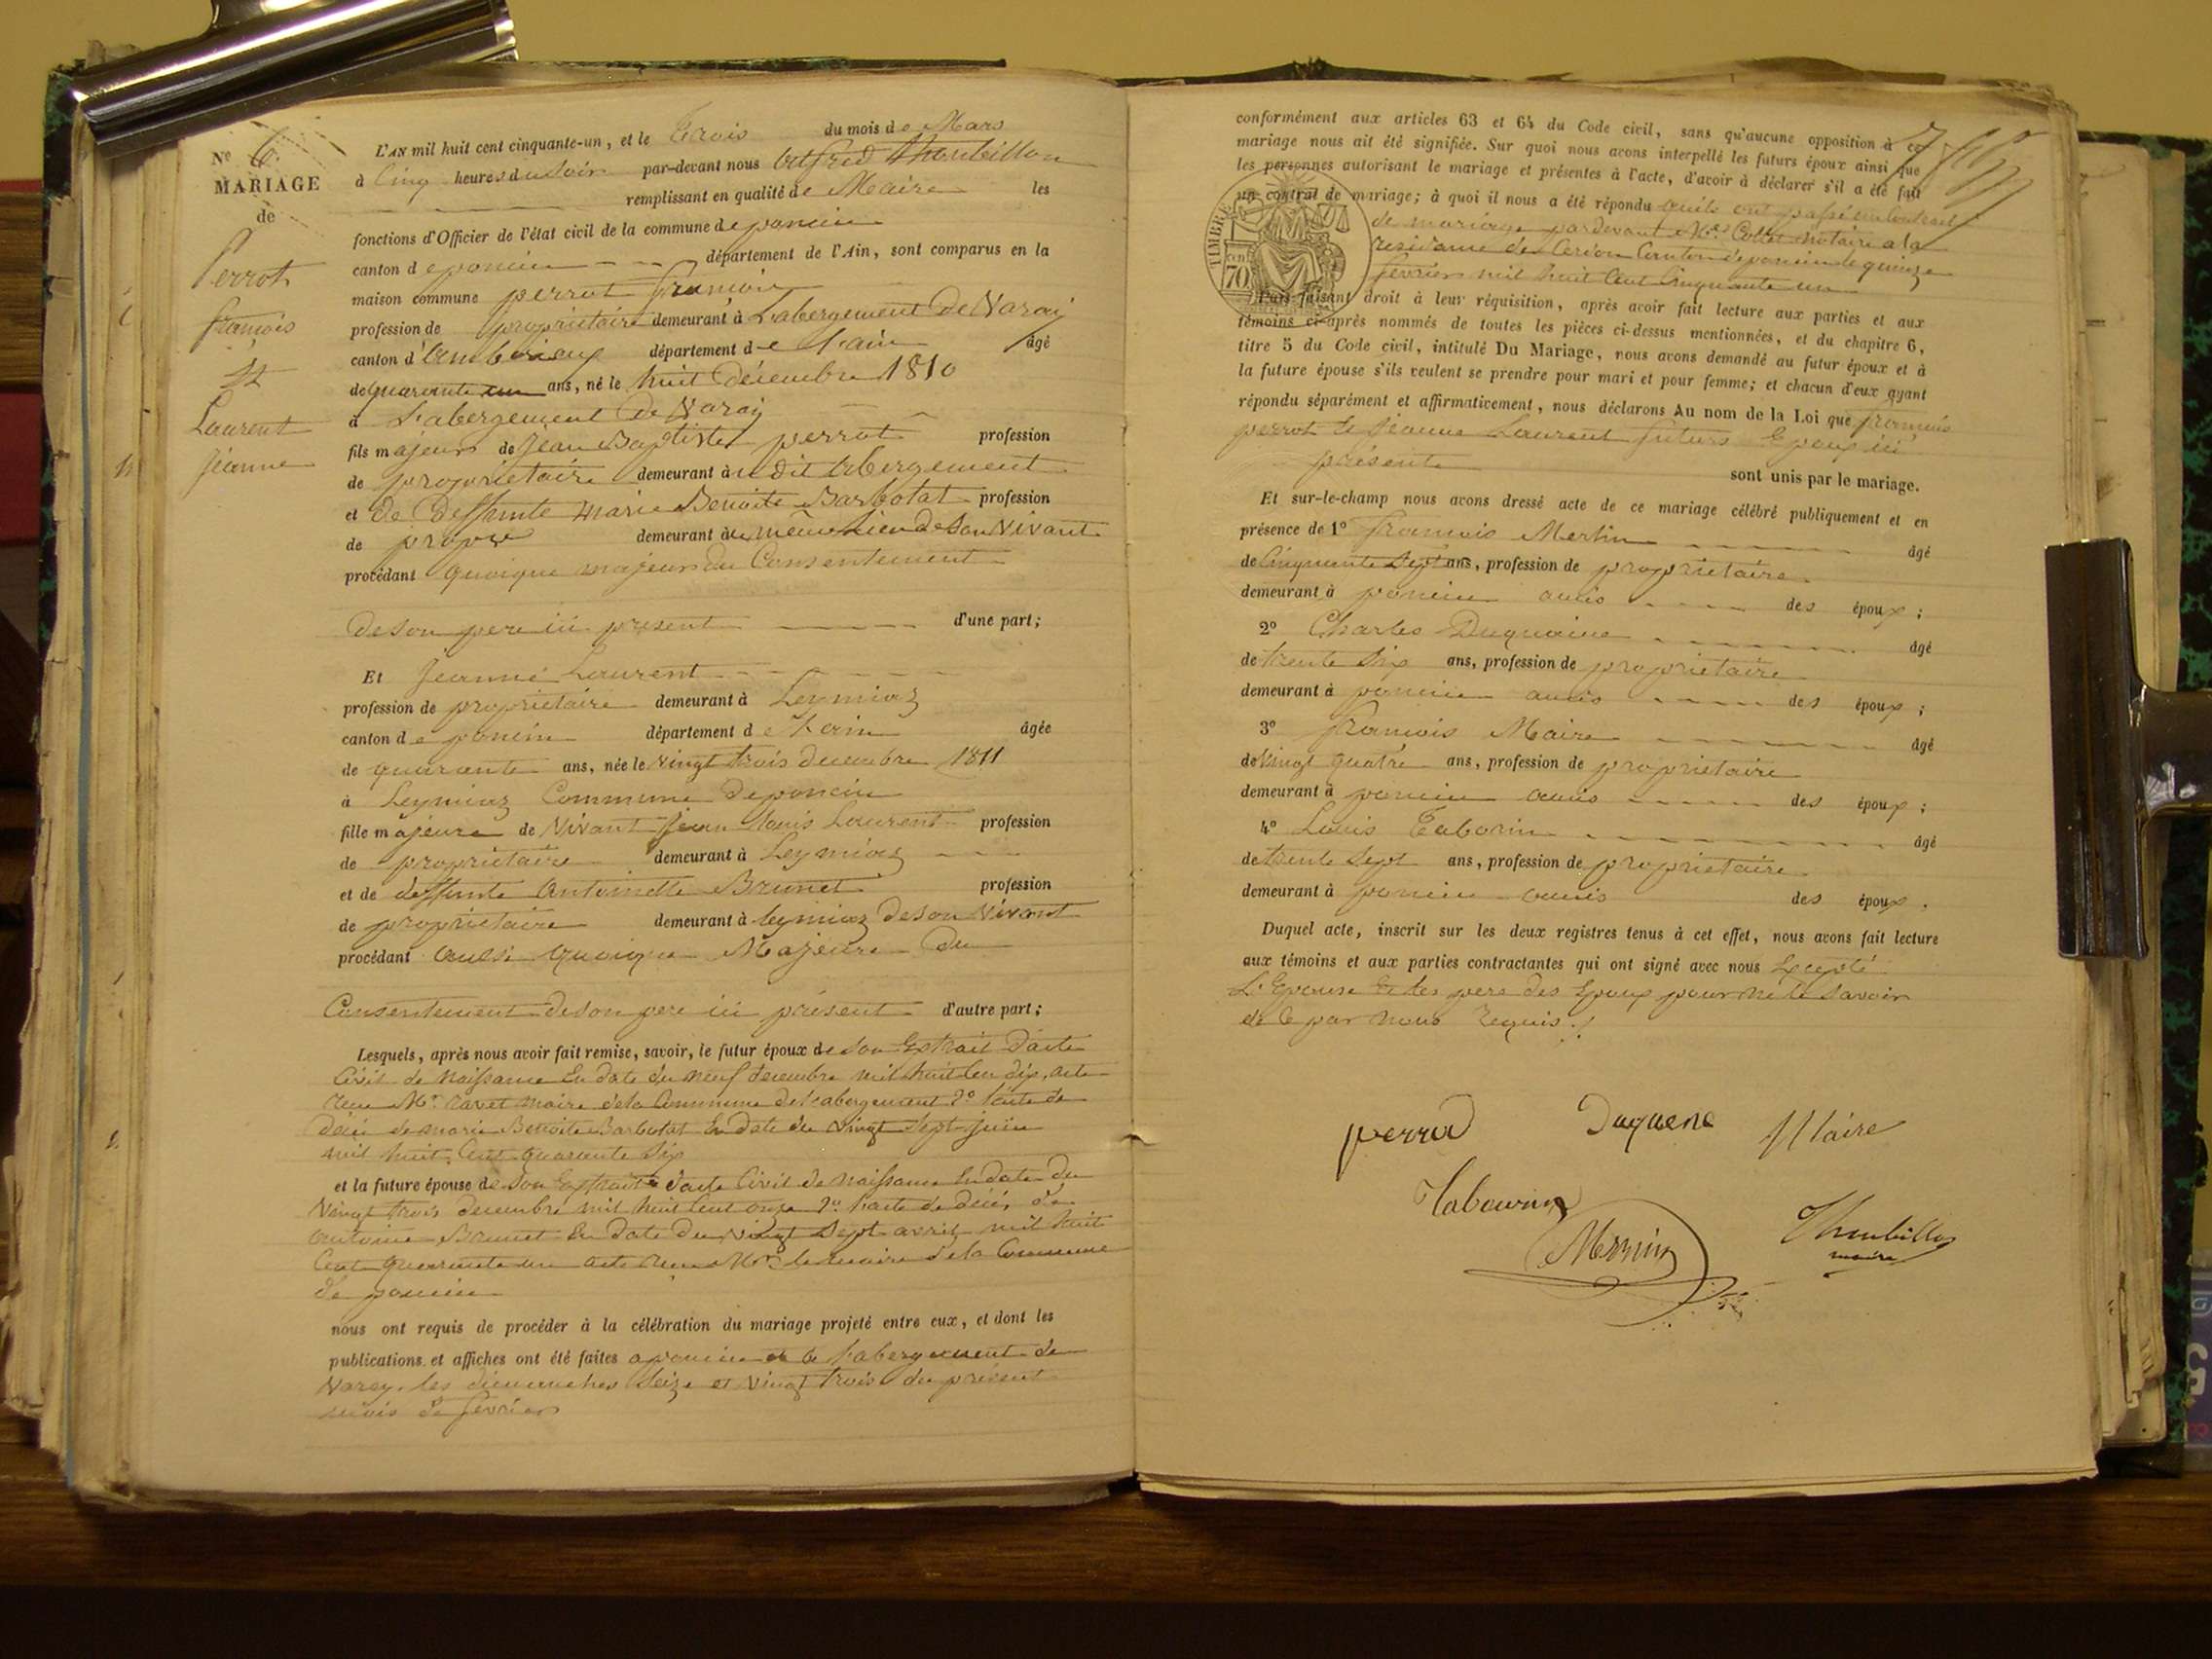 N.º 6.
MARIAGE
de
Perrot
françois
Et
Laurent
Jeanne
L'AN mil huit cent cinquante-un, et le Trois du mois de Mars
à Cinq heures du Soir par-devant nous alfred Thoubillon
remplissant en qualité de Maire les
fonctions d'Officier de l'état civil de la commune de poncin
canton de poncin département de l'Ain, sont comparus en la
maison commune perrot françois
profession de propriétaire demeurant à L'abergement De Varey
canton d'amberieux département de l'ain âgé
de quarante un ans, né le huit Décembre 1810
à L'abergement De Varey
fils majeur de Jean Baptiste perrot profession
de propriétaire demeurant au dit abergement
et De Deffunte Marie Benoite Barbotat profession
de propre demeurant au même Lieu de Son Vivant
procédant quoique majeur du Consentement
de Son pere ici present d'une part;
Et Jeanne Laurent
profession de propriétaire demeurant à Leymiaz
canton de poncin département de l'ain âgée
de quarante ans, née le vingt trois decembre 1811
à Leymiaz Commune De poncin
fille majeure de Vivant Jean Louis Laurent profession
de propriétaire demeurant à Leymiaz
et de deffunte Antoinette Brunet profession
de propriétaire demeurant à leymiaz de Son Vivant
procédant aussi quoique Majeure Du
Consentement de Son pere ici présent d'autre part;
Lesquels, après nous avoir fait remise, savoir, le futur époux de Son Extrait D'acte
Civil de Naissance En Date du neuf decembre mil huit Cen dix, acte
recu Mr. ravet maire de la Commune de L'abergement 2º L'acte de
Décé de marie Benoite Barbotat En Date du vingt Sept juin
mil huit Cent quarante Six
et la future épouse de Son Extrait D'acte Civil de Naissance En Date du
Vingt trois decembre mil huit Cent onze 2º L'acte de Décés de
antoine Brunet En Date du vingt Sept avril mil huit
Cent quarante un acte recu Mr. le maire de la Commune
de poncin
nous ont requis de procéder à la célébration du mariage projeté entre eux, et dont les
publications et affiches ont été faites a poncin et a L'abergement de
Varey, les dimanches Seize et vingt trois du présent
mois de fevrier
conformément aux articles 63 et 64 du Code civil, sans qu'aucune opposition à ce
mariage nous ait été signifiée. Sur quoi nous avons interpellé les futurs époux ainsi que
les personnes autorisant le mariage et présentes à l'acte, d'avoir à déclarer s'il a été fait
un contrat de mariage; à quoi il nous a été répondu quils ont passé un Contrat
de mariage pardevant Me. Collet notaire a la
residance de Cerdon Canton de poncin le quinze
fevrier mil huit Cent Cinquante un
TIMBRE
70 cent
Puis faisant droit à leur réquisition, après avoir fait lecture aux parties et aux
témoins ci-après nommés de toutes les pièces ci-dessus mentionnées, et du chapitre 6,
titre 5 du Code civil, intitulé Du Mariage, nous avons demandé au futur époux et à
la future épouse s'ils veulent se prendre pour mari et pour femme; et chacun d'eux ayant
répondu séparément et affirmativement, nous déclarons Au nom de la Loi que françois
perrot Et Jeanne Laurent futurs Epoux ici
présents sont unis par le mariage.
Et sur-le-champ nous avons dressé acte de ce mariage célébré publiquement et en
présence de 1º françois Merlin âgé
de Cinquante Sept ans, profession de propriétaire
demeurant à poncin amis des époux;
2º Charles Duquaine âgé
de trente Six ans, profession de propriétaire
demeurant à poncin amis des époux;
3º françois Maire âgé
de vingt quatre ans, profession de propriétaire
demeurant à poncin amis des époux;
4º Louis Taborin âgé
de trente Sept ans, profession de propriétaire
demeurant à poncin amis des époux.
Duquel acte, inscrit sur les deux registres tenus à cet effet, nous avons fait lecture
aux témoins et aux parties contractantes qui ont signé avec nous Excepté
L'Epouse Et les pere des Epoux pour ne le Savoir
de Ce par nous Requis./.
perrot Duquene Maire
Tabourin
Mermin Thoubillon
maire